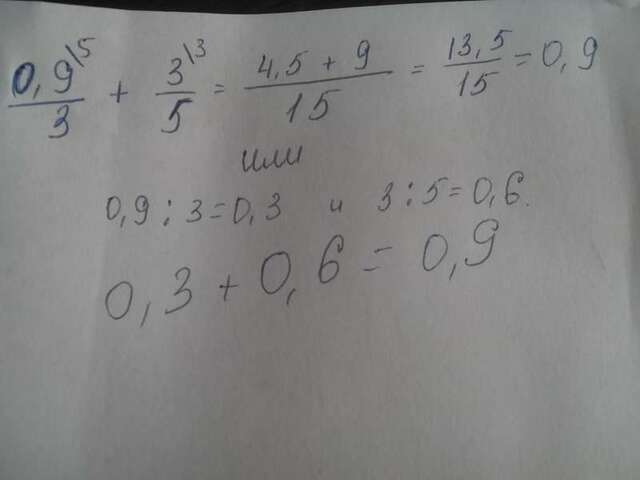 0,9\5/3 + 3\3/5 = 4,5 + 9/15 = 13,5/15 = 0,9
или
0,9 : 3 = 0,3 и 3 : 5 = 0,6.
0,3 + 0,6 = 0,9